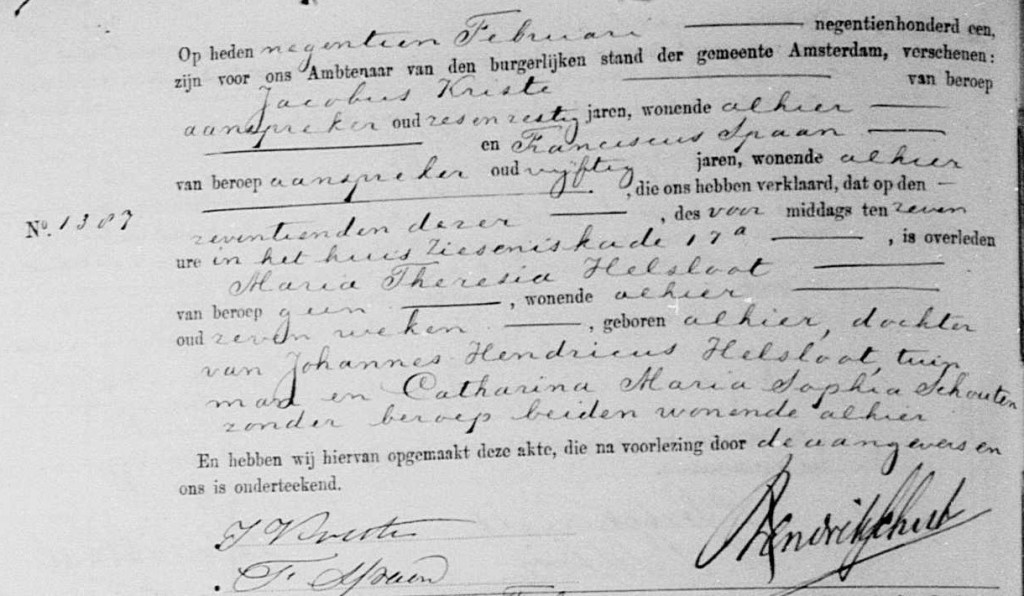 Op heden negentien Februari negentienhonderd een,
zijn voor ons Ambtenaar van den burgerlijken stand der gemeente Amsterdam, verschenen:
Jacobus Kriste van beroep
aanspreker oud zesenzestig jaren, wonende alhier
en Franciscus Spaan
van beroep aanspreker oud vijftig jaren, wonende alhier
, die ons hebben verklaard, dat op den
No. 1387 zeventienden dezer , des voor middags ten zeven
ure in het huis Zieseniskade 17a , is overleden
Maria Theresia Helsloot
van beroep geen , wonende alhier
oud zeven weken , geboren alhier, dochter
van Johannes Hendricus Helsloot, tuin
man en Catharina Maria Sophia Schouten
zonder beroep beiden wonende alhier
En hebben wij hiervan opgemaakt deze akte, die na voorlezing door de aangevers en
ons is onderteekend.
F. Spaan